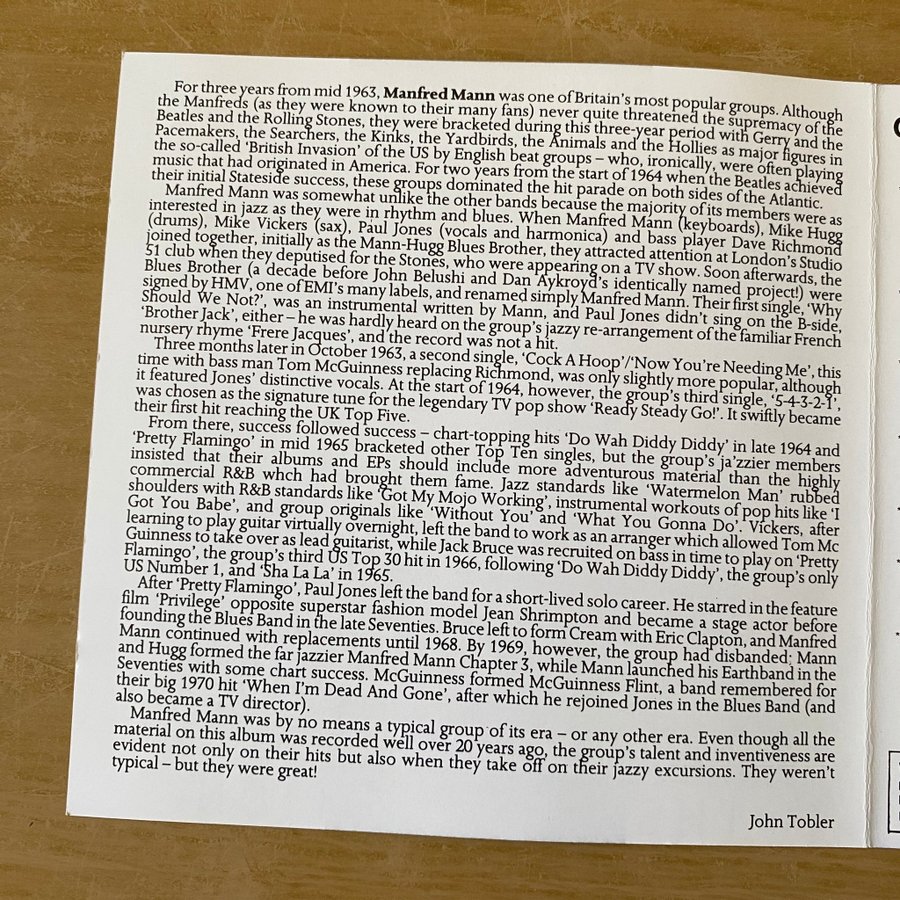 For three years from mid 1963, Manfred Mann was one of Britain's most popular groups. Although
the Manfreds (as they were known to their many fans) never quite threatened the supremacy of the
Beatles and the Rolling Stones, they were bracketed during this three-year period with Gerry and the
Pacemakers, the Searchers, the Kinks, the Yardbirds, the Animals and the Hollies as major figures in
the so-called 'British Invasion' of the US by English beat groups – who, ironically, were often playing
music that had originated in America. For two years from the start of 1964 when the Beatles achieved
their initial Stateside success, these groups dominated the hit parade on both sides of the Atlantic.
Manfred Mann was somewhat unlike the other bands because the majority of its members were as
interested in jazz as they were in rhythm and blues. When Manfred Mann (keyboards), Mike Hugg
(drums), Mike Vickers (sax), Paul Jones (vocals and harmonica) and bass player Dave Richmond
joined together, initially as the Mann-Hugg Blues Brother, they attracted attention at London's Studio
51 club when they deputised for the Stones, who were appearing on a TV show. Soon afterwards, the
Blues Brother (a decade before John Belushi and Dan Aykroyd's identically named project!) were
signed by HMV, one of EMI's many labels, and renamed simply Manfred Mann. Their first single, 'Why
Should We Not?', was an instrumental written by Mann, and Paul Jones didn't sing on the B-side,
'Brother Jack', either – he was hardly heard on the group's jazzy re-arrangement of the familiar French
nursery rhyme 'Frere Jacques', and the record was not a hit.
Three months later in October 1963, a second single, 'Cock A Hoop'/'Now You're Needing Me', this
time with bass man Tom McGuinness replacing Richmond, was only slightly more popular, although
it featured Jones' distinctive vocals. At the start of 1964, however, the group's third single, '5-4-3-2-1',
was chosen as the signature tune for the legendary TV pop show 'Ready Steady Go!'. It swiftly became
their first hit reaching the UK Top Five.
From there, success followed success – chart-topping hits 'Do Wah Diddy Diddy' in late 1964 and
'Pretty Flamingo' in mid 1965 bracketed other Top Ten singles, but the group's ja'zzier members
insisted that their albums and EPs should include more adventurous material than the highly
commercial R&B whch had brought them fame. Jazz standards like 'Watermelon Man' rubbed
shoulders with R&B standards like 'Got My Mojo Working', instrumental workouts of pop hits like 'I
Got You Babe', and group originals like 'Without You' and 'What You Gonna Do'. Vickers, after
learning to play guitar virtually overnight, left the band to work as an arranger which allowed Tom Mc
Guinness to take over as lead guitarist, while Jack Bruce was recruited on bass in time to play on 'Pretty
Flamingo', the group's third US Top 30 hit in 1966, following 'Do Wah Diddy Diddy', the group's only
US Number 1, and 'Sha La La' in 1965.
After 'Pretty Flamingo', Paul Jones left the band for a short-lived solo career. He starred in the feature
film 'Privilege' opposite superstar fashion model Jean Shrimpton and became a stage actor before
founding the Blues Band in the late Seventies. Bruce left to form Cream with Eric Clapton, and Manfred
Mann continued with replacements until 1968. By 1969, however, the group had disbanded; Mann
and Hugg formed the far jazzier Manfred Mann Chapter 3, while Mann launched his Earthband in the
Seventies with some chart success. McGuinness formed McGuinness Flint, a band remembered for
their big 1970 hit 'When I'm Dead And Gone', after which he rejoined Jones in the Blues Band (and
also became a TV director).
Manfred Mann was by no means a typical group of its era – or any other era. Even though all the
material on this album was recorded well over 20 years ago, the group's talent and inventiveness are
evident not only on their hits but also when they take off on their jazzy excursions. They weren't
typical – but they were great!
John Tobler